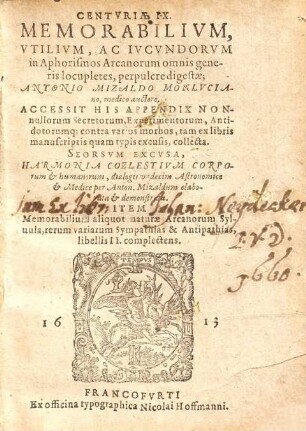 CENTURIÆ IX.
MEMORABILIVM,
VTILIVM, AC IVCVNDORVM
in Aphorismos Arcanorum omnis gene-
ris locupletes, perpulcre digestæ;
ANTONIO MIZALDO MONLVCIA-
no, medico auctore.
ACCESSIT HIS APPENDIX NON-
nullorum Secretorum, Experimentorum, Anti-
dotorumq; contra varios morbos, tam ex libris
manuscriptis quam typis excusis, collecta.
SEORSVM EXCVSA,
HARMONIA COELESTIVM CORPO-
rum & humanorum, dialogis vndecim Astronomice
& Medice per Anton. Mizaldum elabo-
rata & demonstrata.
Johan: Neydecker
ITEM
I.V.D.
Memorabilium aliquot naturæ Arcanorum Syl-
uula, rerum variarum Sympathias & Antipathias,
libellis II. complectens.
1660
16 13
FRANCOFVRTI
Ex officina typographica Nicolai Hoffmanni.